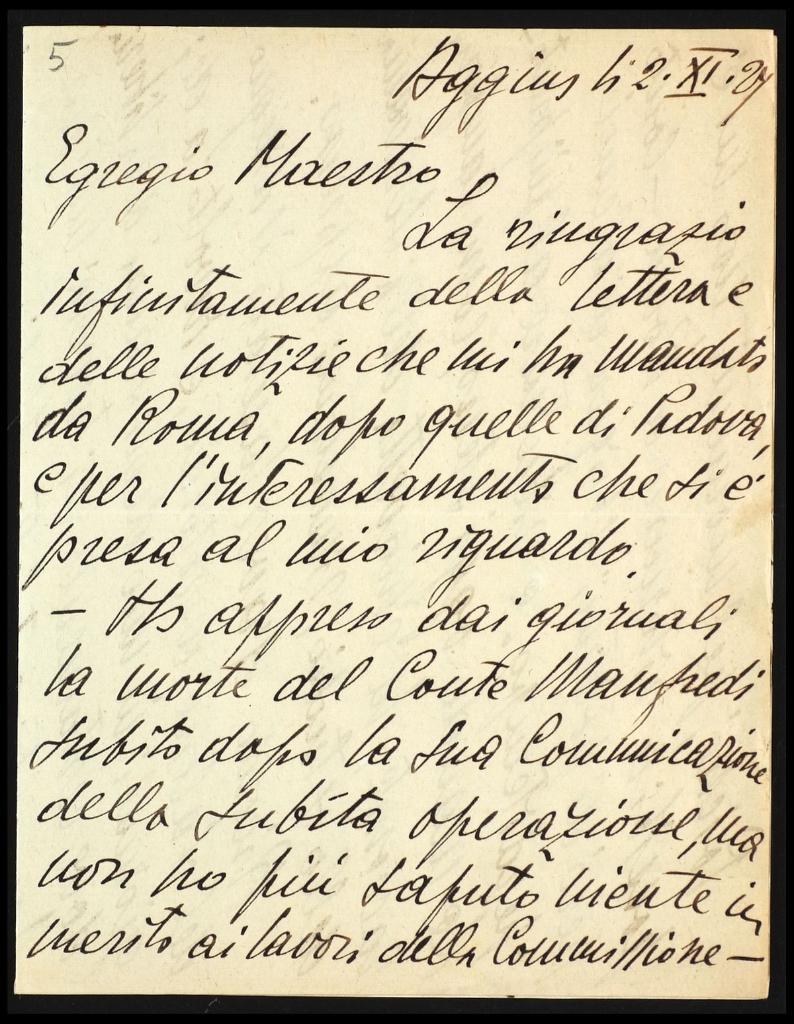 5
Aggius li 2. XI. 27
Egregio Maestro
La ringrazio
infinitamente della lettera e
delle notizie che mi ha mandato
da Roma, dopo quelle di Padova,
e per l'interessamento che si è
presa al mio riguardo.
— Ho appreso dai giornali
la morte del Conte Manfredi
subito dopo la sua Comunicazione
della subita operazione, ma
non ho più saputo niente in
merito ai lavori della Commissione —